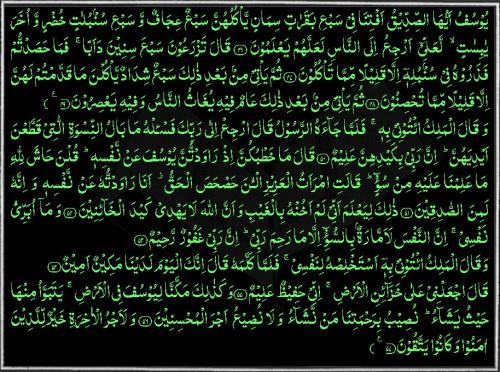 يُوۡسُفُ اَيُّهَا الصِّدِّيۡقُ اَفۡتِنَا فِىۡ سَبۡعِ بَقَرٰتٍ سِمَانٍ يَّاۡكُلُهُنَّ سَبۡعٌ عِجَافٌ وَّ سَبۡعِ سُنۡۢبُلٰتٍ خُضۡرٍ وَّ اُخَرَ
يٰبِسٰتٍ ۙ لَّعَلِّىۡۤ اَرۡجِعُ اِلَى النَّاسِ لَعَلَّهُمۡ يَعۡلَمُوۡنَ ﴿۴۶﴾ قَالَ تَزۡرَعُوۡنَ سَبۡعَ سِنِيۡنَ دَاَبًا ۚ فَمَا حَصَدْتُّمۡ
فَذَرُوۡهُ فِىۡ سُنۡۢبُلِهٖۤ اِلَّا قَلِيۡلًا مِّمَّا تَاۡكُلُوۡنَ ﴿۴۷﴾ ثُمَّ يَاۡتِىۡ مِنۡۢ بَعۡدِ ذٰلِكَ سَبۡعٌ شِدَادٌ يَّاۡكُلۡنَ مَا قَدَّمۡتُمۡ لَهُنَّ
اِلَّا قَلِيۡلًا مِّمَّا تُحۡصِنُوۡنَ ﴿۴۸﴾ ثُمَّ يَاۡتِىۡ مِنۡۢ بَعۡدِ ذٰلِكَ عَامٌ فِيۡهِ يُغَاثُ النَّاسُ وَ فِيۡهِ يَعۡصِرُوۡنَ ﴿۴۹﴾
وَ قَالَ الۡمَلِكُ ائۡتُوۡنِىۡ بِهٖ ۚ فَلَمَّا جَآءَهُ الرَّسُوۡلُ قَالَ ارۡجِعۡ اِلٰى رَبِّكَ فَسۡـَٔلۡهُ مَا بَالُ النِّسۡوَةِ الّٰتِىۡ قَطَّعۡنَ
اَيۡدِيَهُنَّ ؕ اِنَّ رَبِّىۡ بِكَيۡدِهِنَّ عَلِيۡمٌ ﴿۵۰﴾ قَالَ مَا خَطۡبُكُنَّ اِذۡ رَاوَدْتُّنَّ يُوۡسُفَ عَنۡ نَّفۡسِهٖ ؕ قُلۡنَ حَاشَ لِلّٰهِ
مَا عَلِمۡنَا عَلَيۡهِ مِنۡ سُوۡٓءٍ ؕ قَالَتِ امۡرَاَتُ الۡعَزِيۡزِ الۡـٰٔنَ حَصۡحَصَ الۡحَقُّ ۫ اَنَا رَاوَدْتُّهٗ عَنۡ نَّفۡسِهٖ وَ اِنَّهٗ
لَمِنَ الصّٰدِقِيۡنَ ﴿۵۱﴾ ذٰلِكَ لِيَـعۡلَمَ اَنِّىۡ لَمۡ اَخُنۡهُ بِالۡغَيۡبِ وَ اَنَّ اللّٰهَ لَا يَهۡدِىۡ كَيۡدَ الۡخَآئِنِيۡنَ ﴿۵۲﴾ وَ مَاۤ اُبَرِّئُ
نَفۡسِىۡ ۚ اِنَّ النَّفۡسَ لَاَمَّارَةٌۢ بِالسُّوۡٓءِ اِلَّا مَا رَحِمَ رَبِّىۡ ؕ اِنَّ رَبِّىۡ غَفُوۡرٌ رَّحِيۡمٌ ﴿۵۳﴾
وَ قَالَ الۡمَلِكُ ائۡتُوۡنِىۡ بِهٖۤ اَسۡتَخۡلِصۡهُ لِنَفۡسِىۡ ۚ فَلَمَّا كَلَّمَهٗ قَالَ اِنَّكَ الۡيَوۡمَ لَدَيۡنَا مَكِيۡنٌ اَمِيۡنٌ ﴿۵۴﴾
قَالَ اجۡعَلۡنِىۡ عَلٰى خَزَآئِنِ الۡاَرۡضِ ۚ اِنِّىۡ حَفِيۡظٌ عَلِيۡمٌ ﴿۵۵﴾ وَ كَذٰلِكَ مَكَّنَّا لِيُوۡسُفَ فِى الۡاَرۡضِ ۚ يَتَبَوَّاُ مِنۡهَا
حَيۡثُ يَشَآءُ ؕ نُصِيۡبُ بِرَحۡمَتِنَا مَنۡ نَّشَآءُ وَ لَا نُضِيۡعُ اَجۡرَ الۡمُحۡسِنِيۡنَ ﴿۵۶﴾ وَ لَاَجۡرُ الۡاٰخِرَةِ خَيۡرٌ لِّلَّذِيۡنَ
اٰمَنُوۡا وَ كَانُوۡا يَتَّقُوۡنَ ﴿۵۷﴾